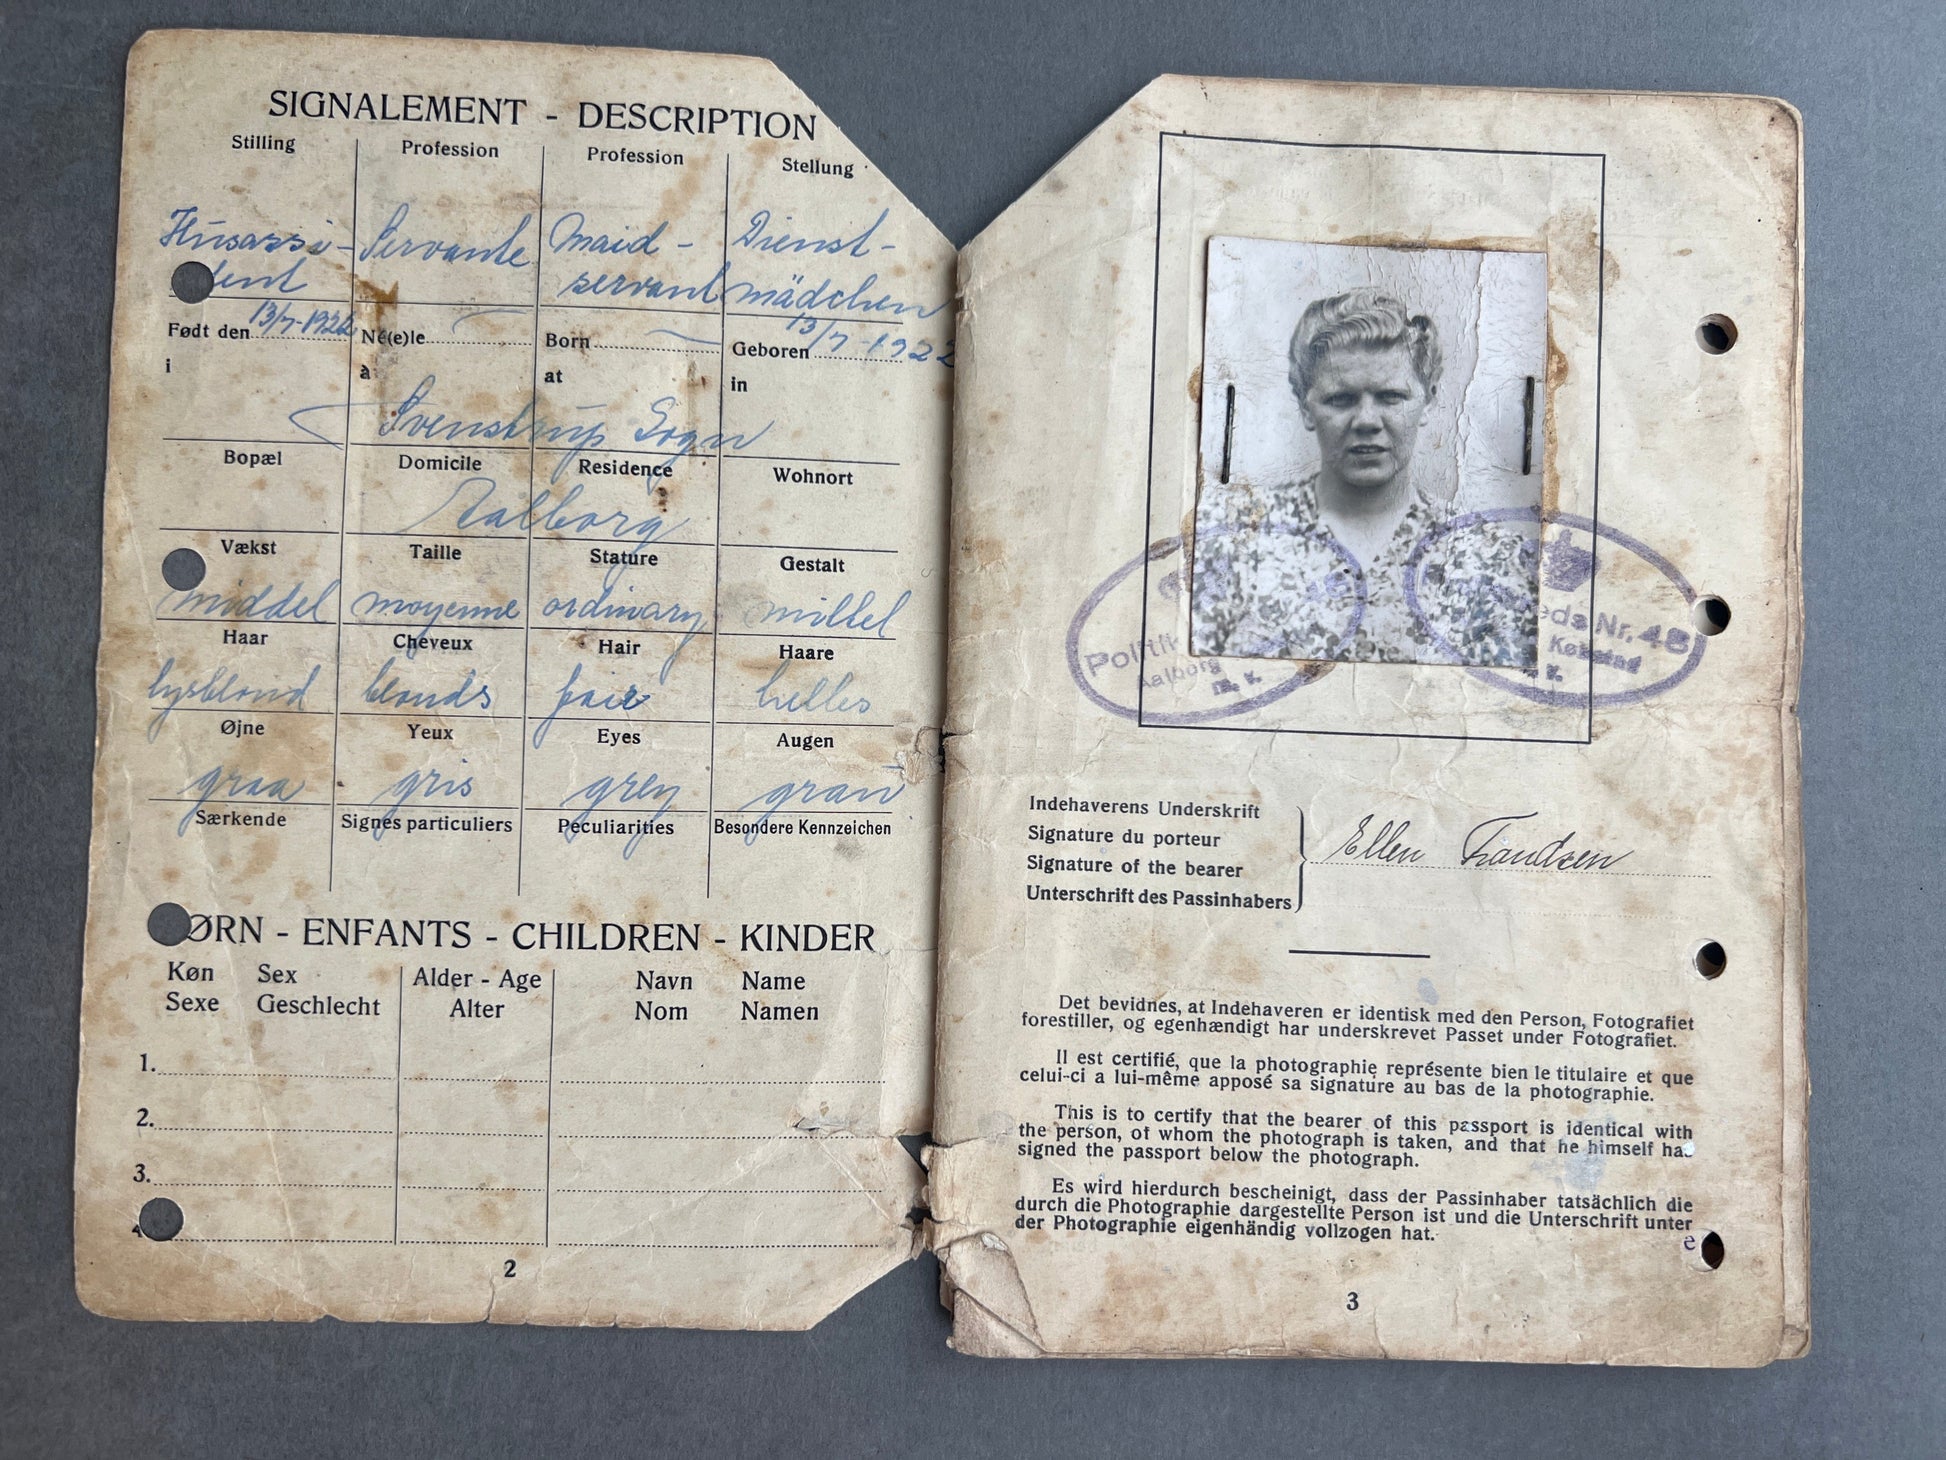 SIGNALEMENT - DESCRIPTION
Stilling Profession Profession Stellung
Husassi- Servante Maid- Dienst-
tent servant mädchen
Født den 13/7-1922 Né(e)le Born Geboren 13/7-1922
i à at in
Svenstrup Sogn
Bopæl Domicile Residence Wohnort
Aalborg
Vækst Taille Stature Gestalt
middel moyenne ordinary mittel
Haar Cheveux Hair Haare
lysblond blonds fair helles
Øjne Yeux Eyes Augen
graa gris grey grau
Særkende Signes particuliers Peculiarities Besondere Kennzeichen
ØRN - ENFANTS - CHILDREN - KINDER
Køn Sex Alder - Age Navn Name
Sexe Geschlecht Alter Nom Namen
1.
2.
3.
4
2
Politik
Aalborg
m. v.
eds Nr. 48
Indehaverens Underskrift
Signature du porteur
Signature of the bearer
Unterschrift des Passinhabers
Ellen Frandsen
Det bevidnes, at Indehaveren er identisk med den Person, Fotografiet
forestiller, og egenhændigt har underskrevet Passet under Fotografiet.
Il est certifié, que la photographie représente bien le titulaire et que
celui-ci a lui-même apposé sa signature au bas de la photographie.
This is to certify that the bearer of this passport is identical with
the person, of whom the photograph is taken, and that he himself has
signed the passport below the photograph.
Es wird hierdurch bescheinigt, dass der Passinhaber tatsächlich die
durch die Photographie dargestellte Person ist und die Unterschrift unter
der Photographie eigenhändig vollzogen hat.
e
3